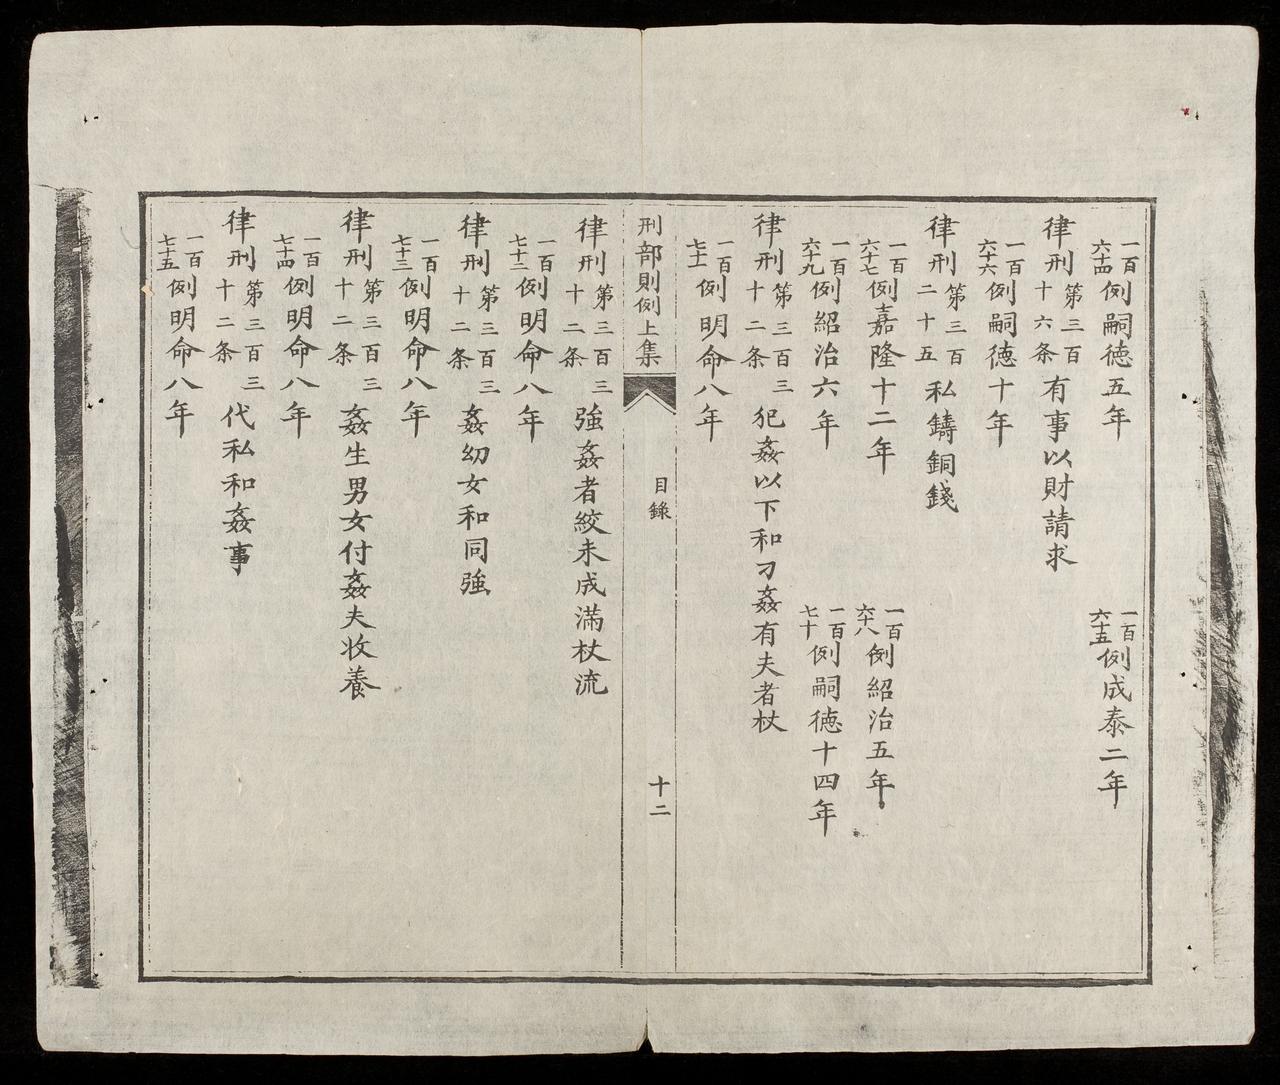 一百六十四例嗣徳五年　一百六十五例成泰二年
律刑第三百十六条有事以財請求
一百六十六例嗣徳十年
律刑第三百二十五私鑄銅錢
一百六十七例嘉隆十二年　一百六十八例紹治五年
一百六十九例紹治六年　一百七十例嗣徳十四年
律刑第三百三十二条犯姦以下和刁姦有夫者杖
一百七十一例明命八年
刑部則例上集　目錄　十二
律刑第三百三十二条強姦者絞未成滿杖流
一百七十二例明命八年
律刑第三百三十二条姦幼女和同強
一百七十三例明命八年
律刑第三百三十二条姦生男女付姦夫收養
一百七十四例明命八年
律刑第三百三十二条代私和姦事
一百七十五例明命八年